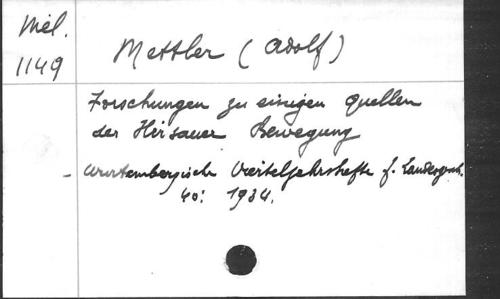 Mél.
1149
Mettler (Adolf)
Forschungen zu einigen Quellen
der Hirsauer Bewegung
- Wurtembergische Vierteljahrshefte f. Landesgesch.
40: 1934.